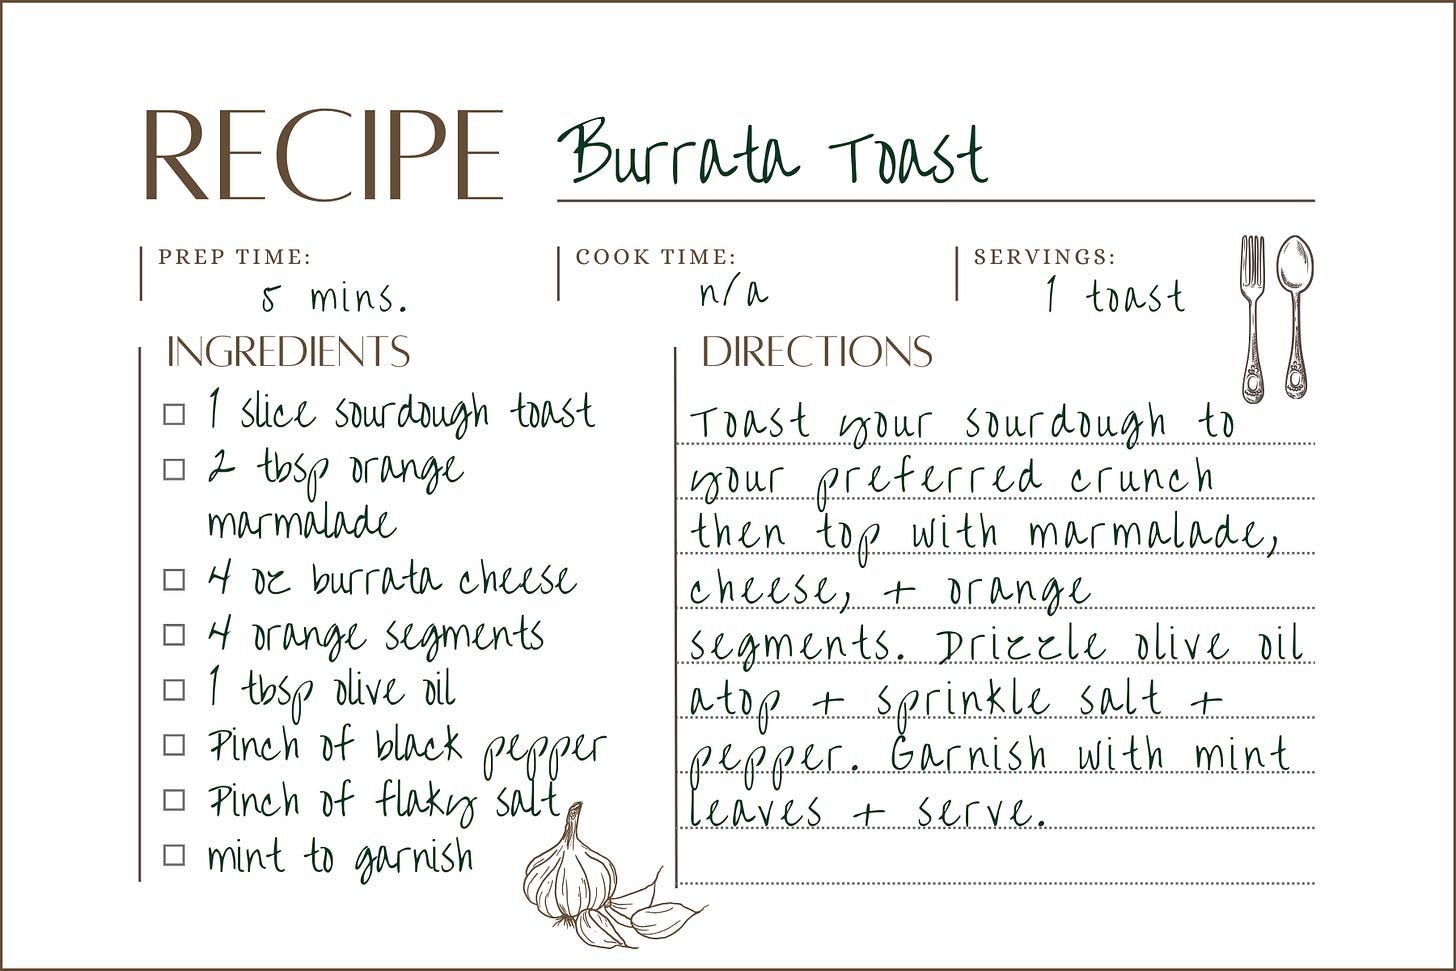 RECIPE Burrata Toast
PREP TIME: COOK TIME: SERVINGS:
5 mins. n/a 1 toast
INGREDIENTS
1 slice sourdough toast
2 tbsp orange
marmalade
4 oz burrata cheese
4 orange segments
1 tbsp olive oil
Pinch of black pepper
Pinch of flaky salt
mint to garnish
DIRECTIONS
Toast your sourdough to
your preferred crunch
then top with marmalade,
cheese, + orange
segments. Drizzle olive oil
atop + sprinkle salt +
pepper. Garnish with mint
leaves + serve.